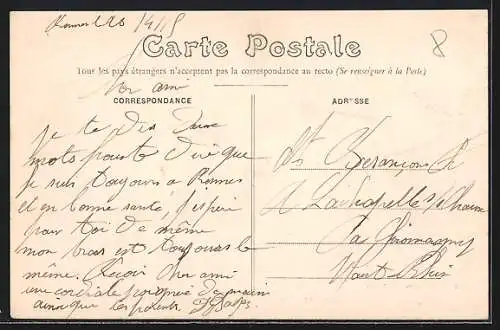 Rennes le 20 /4/15
8
Carte Postale
Tous les pays étrangers n'acceptent pas la correspondance au recto (Se renseigner à la Poste)
Mon ami
CORRESPONDANCE
je te dis deux
mots pour te dire que
je suis toujours à Rennes
et en bonne santé, j'espère
pour toi de même
mon bras est toujours le
même. Reçois cher ami
une cordiale poignée de main
ainsi que les parents
ADRESSE
Mr Besançon
A Lachapelle s/s Chaux
par Giromagny
Haut-Rhin